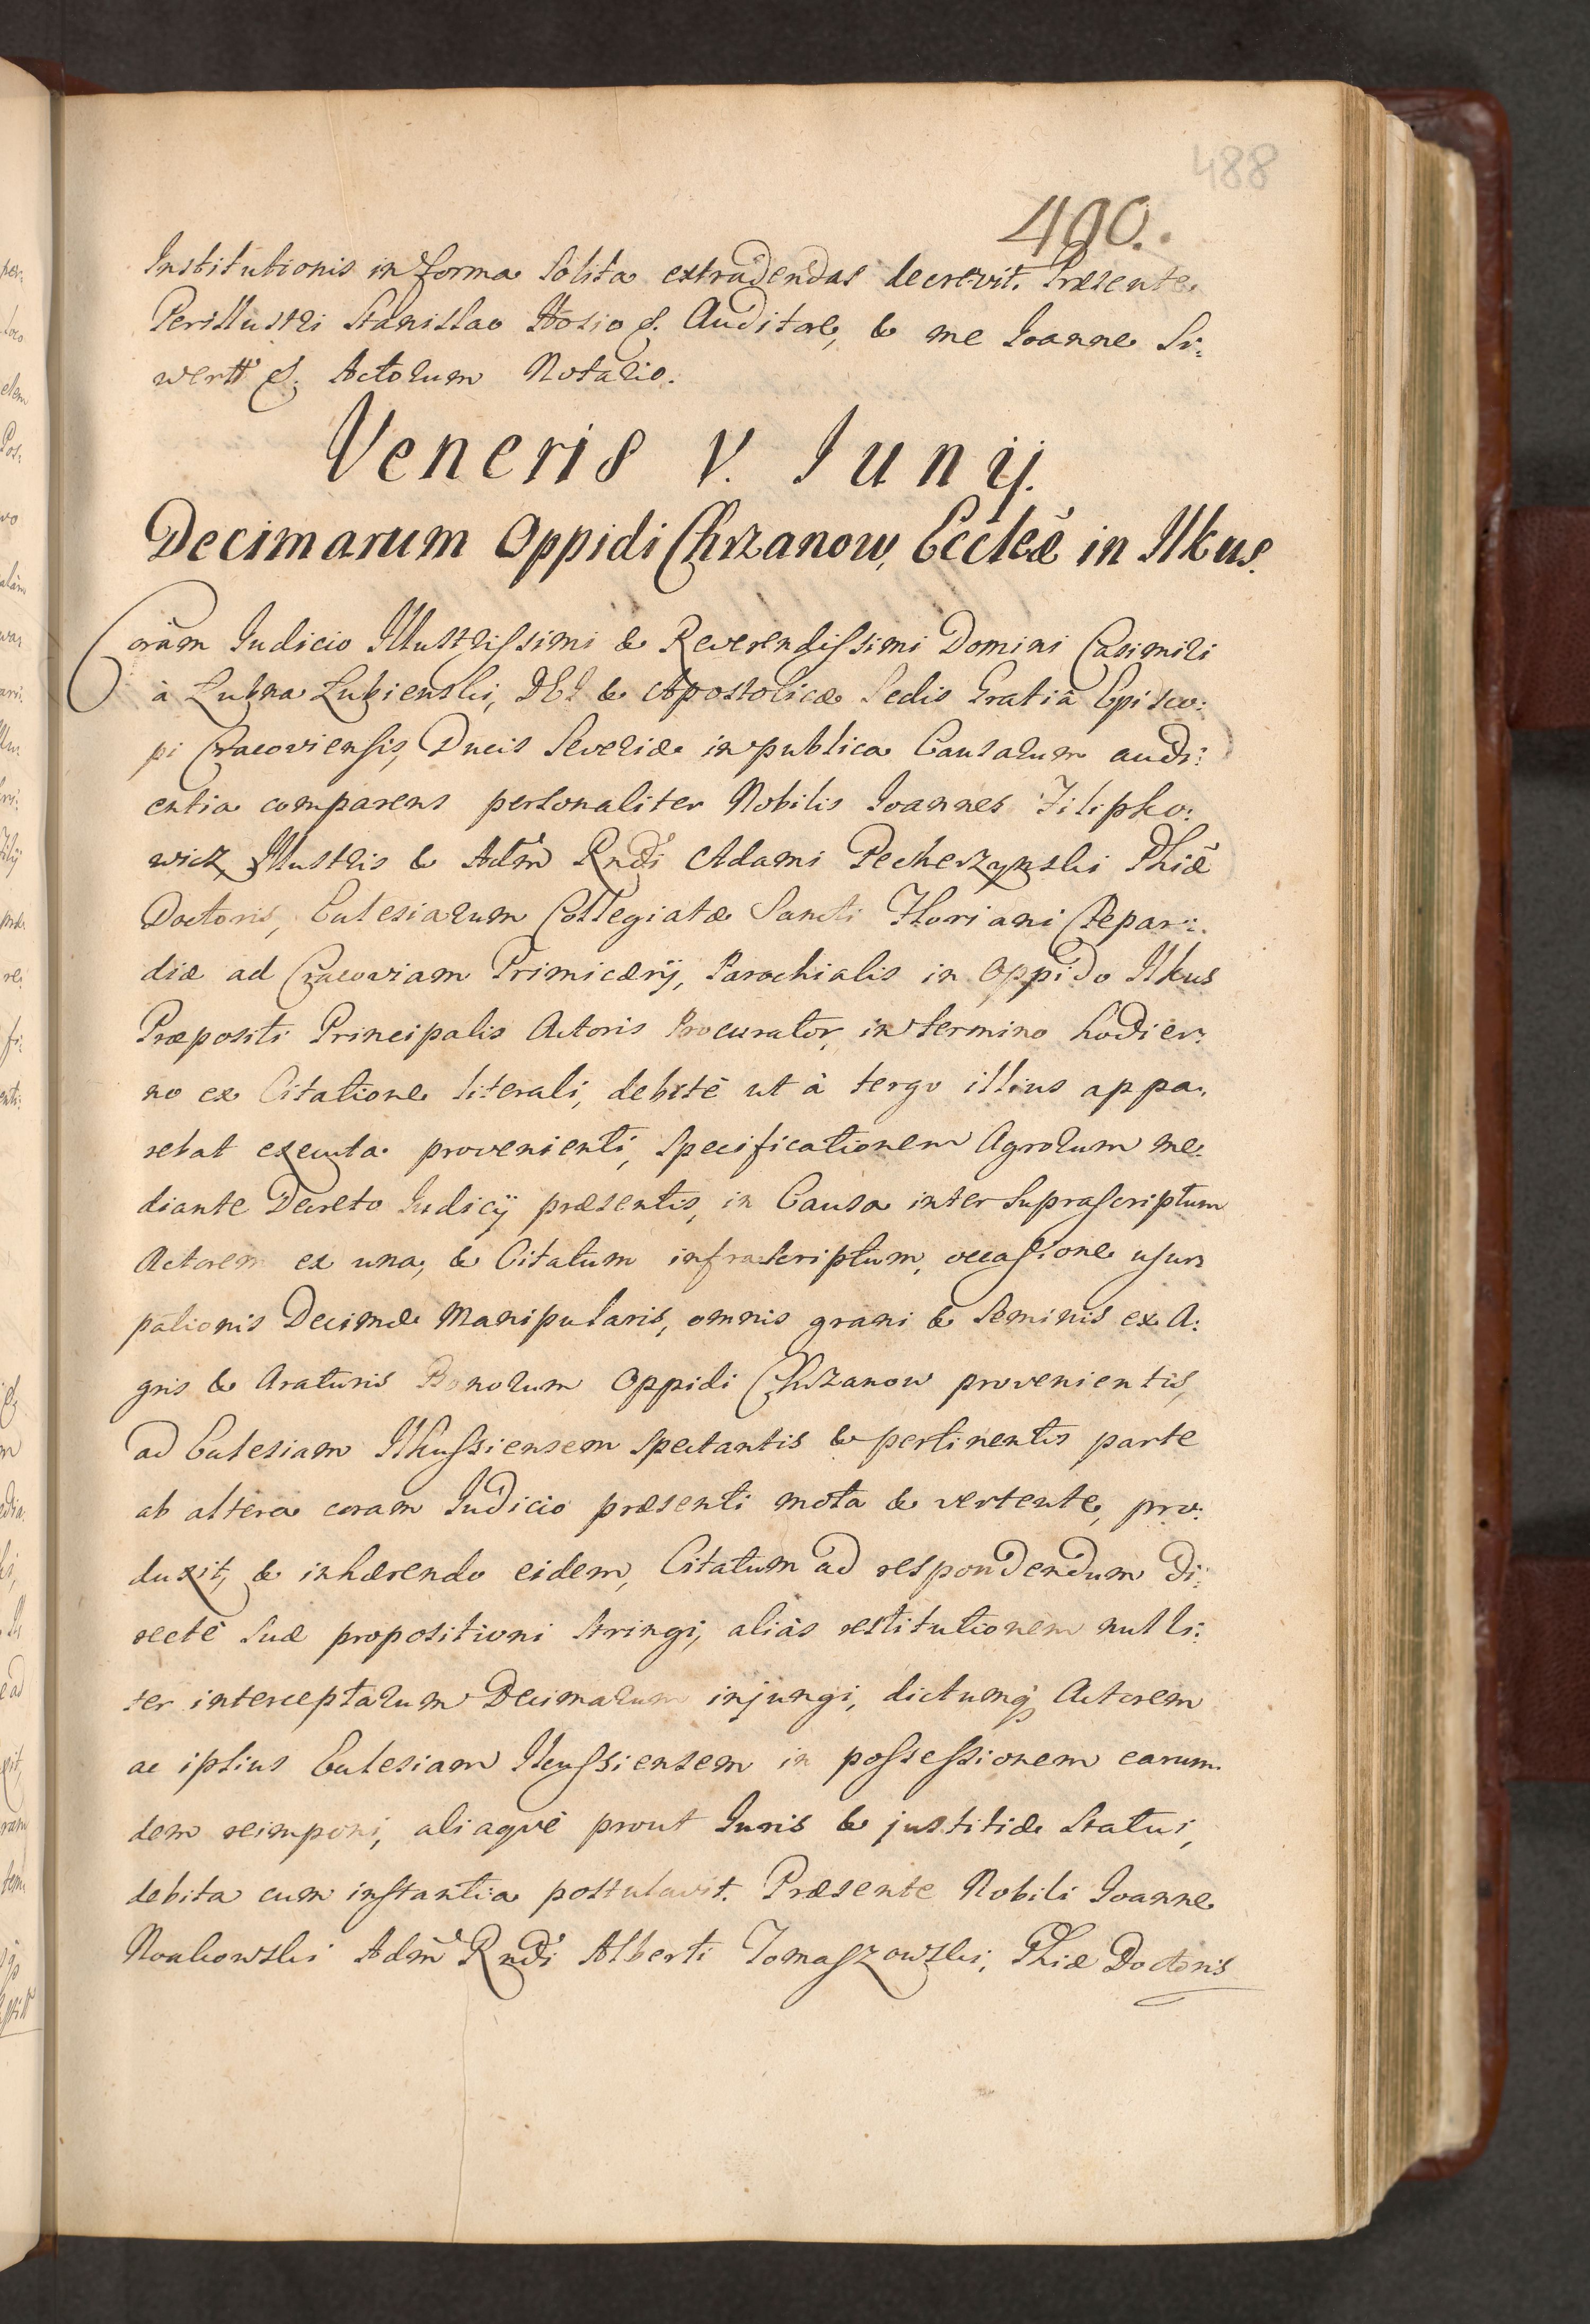 488
490.
Institutionis in forma solita extradendas decrevit. Præsente
Perillustri Stanislao Hosio &. Auditore, & me Ioanne Si:
wertt &. Actorum Notario.
Veneris V. Iunij.
Decimarum Oppidi Chrzanow, Eccleæ in Ilkus.
Coram Iudicio Illustrissimi & Reverendissimi Domini Casimiri
à Łubna Łubienski, DEI & Apostolicæ Sedis Gratiâ Episco:
pi Cracoviensis, Ducis Severiæ in publica Causarum audi:
entia comparens personaliter Nobilis Ioannes Filipko:
wicz Illustris & Adm̃ Rndi Adami Pecherzynski Phiæ
Doctoris, Eclesiarum Collegiatæ Sancti Floriani Clepar:
diæ ad Cracoviam Primicærij, Parochialis in Oppido Ilkus
Præpositi Principalis Actoris Procurator, in termino hodier:
no ex Citatione literali, debitè ut à tergo illius appa,
rebat executa provenienti, Specificationem Agrorum me:
diante Decreto Iudicij præsentis, in Causa inter Suprascriptum
Actorem ex una, & Citatum infrascriptum, occasione usur:
pationis Decimæ Manipularis, omnis grani & seminis ex A:
gris & Araturis Bonorum Oppidi Chrzanow provenientis,
ad Eclesiam Ilkussiensem spectantis & pertinentis parte
ab altera coram Iudicio præsenti mota & vertente, pro:
duxit, & inhærendo eidem, Citatum ad respondendum di:
rectè suæ propositioni stringi, aliàs restitutionem nulli:
ter interceptarum Decimarum injungi, dictumq; Actorem
ac ipsius Eclesiam Ilcussiensem in possessionem earum:
dem reimponi, aliaque prout Iuris & justitiæ Statui,
debita cum instantia postulavit. Præsente Nobili Ioanne
Noakowski Adm̃ Rndi Alberti Tomaszowski, Phiæ Doctoris